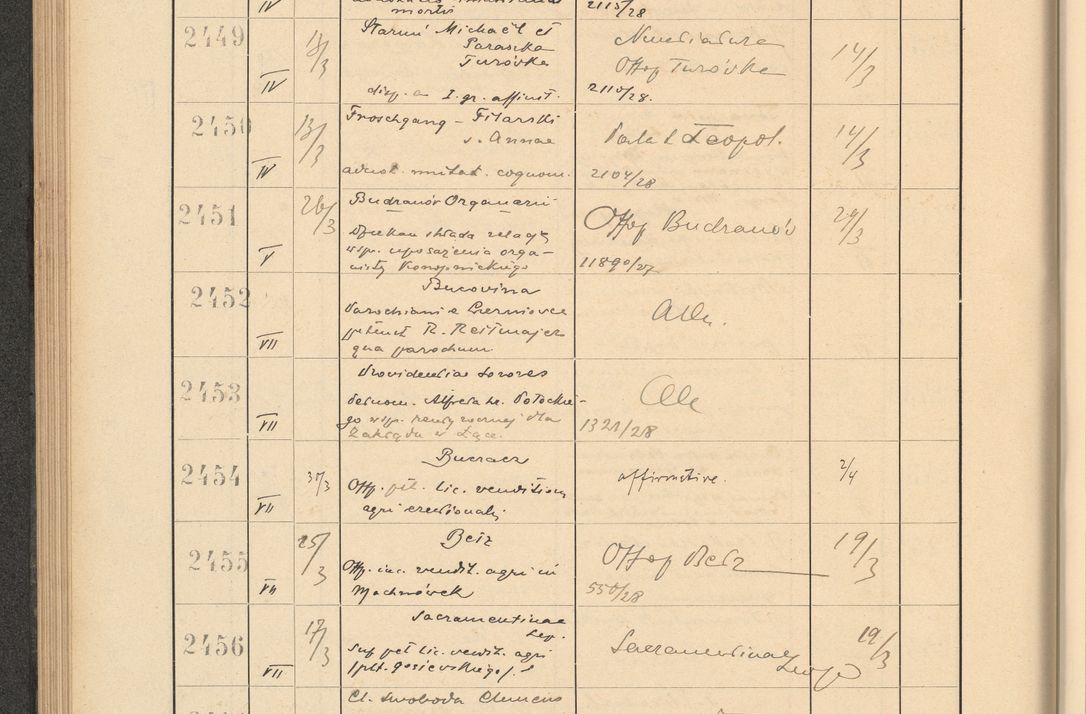 IV
mortis
2115/28
2449
IV
14/3
Michaël et
Paraszka
Turówka
disp. a I. gr. affinit.
Offop Turówka
2110/28.
14/3
2450
IV
13/3
Froschgang – Filarski
v. Annae
Leopol.
2104/28
14/3
2451
V
26/3
Budzanów Organarii
Dziekan składa relację
wsp. uposażenia orga-
nisty Konopnickiego
Offop Budzanów
11890/27
29/3
2452
VII
Bucovina
Parochiani e Czerniovce
petunt R. Reitmajer
qua parochum
Alla.
2453
VII
Providentiae Sorores
Alfreda hr. Potockie-
go wsp. renty rocznej dla
Zakładu w Łące.
1321/28
2454
VII
31/3
Buczacz
Off. pet. lic. venditionis
agri erectionalis
affirmative.
2/4
2455
VII
15/3
Bełz
vendit. agri in
Machnówek
Offop Bełz
550/28
19/3
2456
VII
17/3
Sacramentinae
Leop.
Sup. pet. lic. vendit. agri
Sacramentinae
Leop.
19/3
Cl. Swoboda Clemens